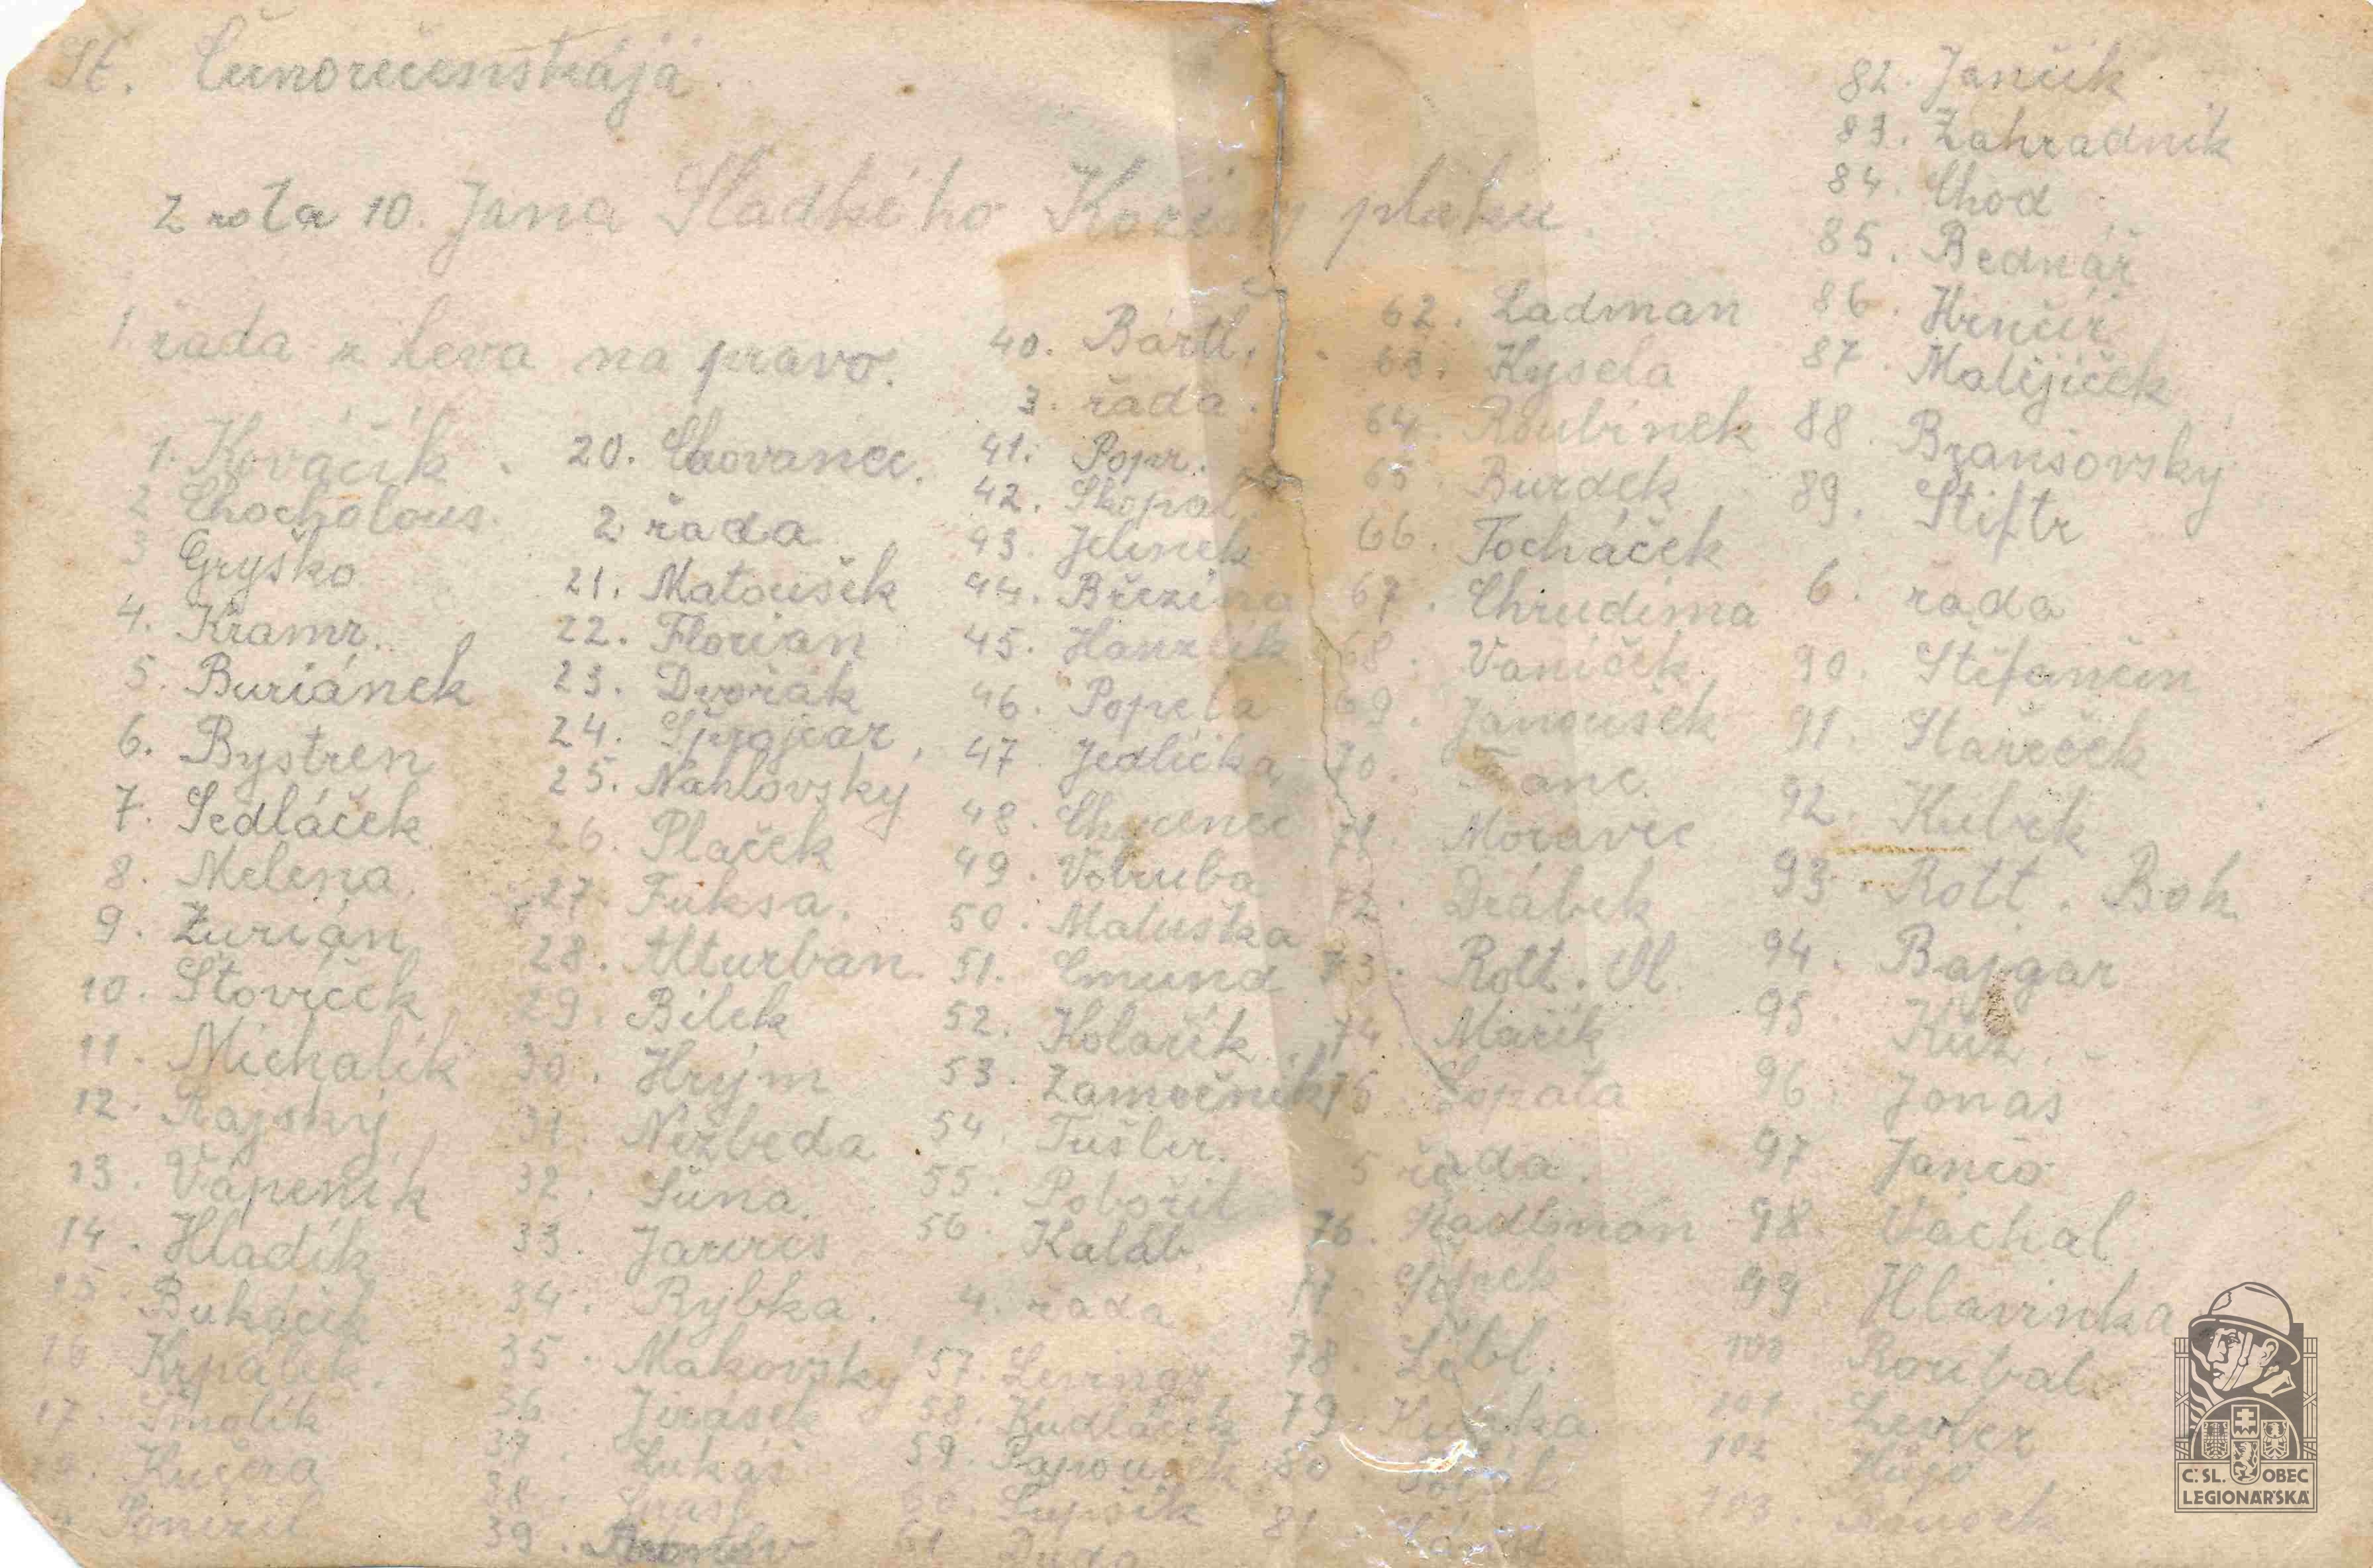 St. Čunorečenskája.
2 rota 10. Jana Sladkého Koziny pluku.
1 řada z leva na pravo.
1. Kováčik.
2 Chocholous.
3 Gryško
4. Kramr.
5. Buriánek
6. Bystren
7. Sedláček
8. Melena.
9. Žurián
10. Štovíček
11. Michalík
12. Rajský
13. Vápeník
14. Hladík
15. Bukáček
16 Krpálek.
17. Smolík
Kučera
Ponížil
20. Chovanec.
2 řada
21. Matoušek
22. Florian
23. Dvořák
24.
25. Náhlovský
26. Plaček
27. Fuksa.
28. Alturban.
29. Bílek
30. Hrým
31. Nežbeda
32. Šuna.
33. Jarvis
34. Rybka.
35. Makovský
36 Jirásek
37. Lukáš
38.
39.
40. Bártl.
3. řada.
41. Popr.
42. Skopal.
43. Jelinek
44. Březina
45. Hanzlík
46. Popela
47 Jedlička
48.
49. Vobruba
50. Matuška
51. Cmund
52. Kolařík.
53. Zamečník
54. Tušler.
55. Pobožil
56. Kaláb.
4. řada
57.
58. Kudláček
59. Papoušek
60.
61 Dura
62. Ladman
63. Kysela
64. Roubínek
65 Burdek
66. Tocháček
67. Chrudima
68. Vaníček.
69. Janoušek
70.
71 Moravec
72. Drábek
73. Rott. Vl.
74 Mařík
75 Lopata
5 řada.
76.
77
78. Lébl.
79
80
81.
82. Jančík
83. Zahradník
84. Chod
85. Bednář
86. Hrnčíř
87. Matějíček
88. Branšovský
89. Štiftr
6. řada
90. Štefančin
91. Stareček
92. Kubík
93. Rott. Boh.
94. Bajgar
95 Kůž.
96. Jonas
97 Jančo
98 Vachal
99 Hlavinka
100 Roubal
101
102 Hugo
103.
Č. SL. OBEC
LEGIONÁŘSKÁ